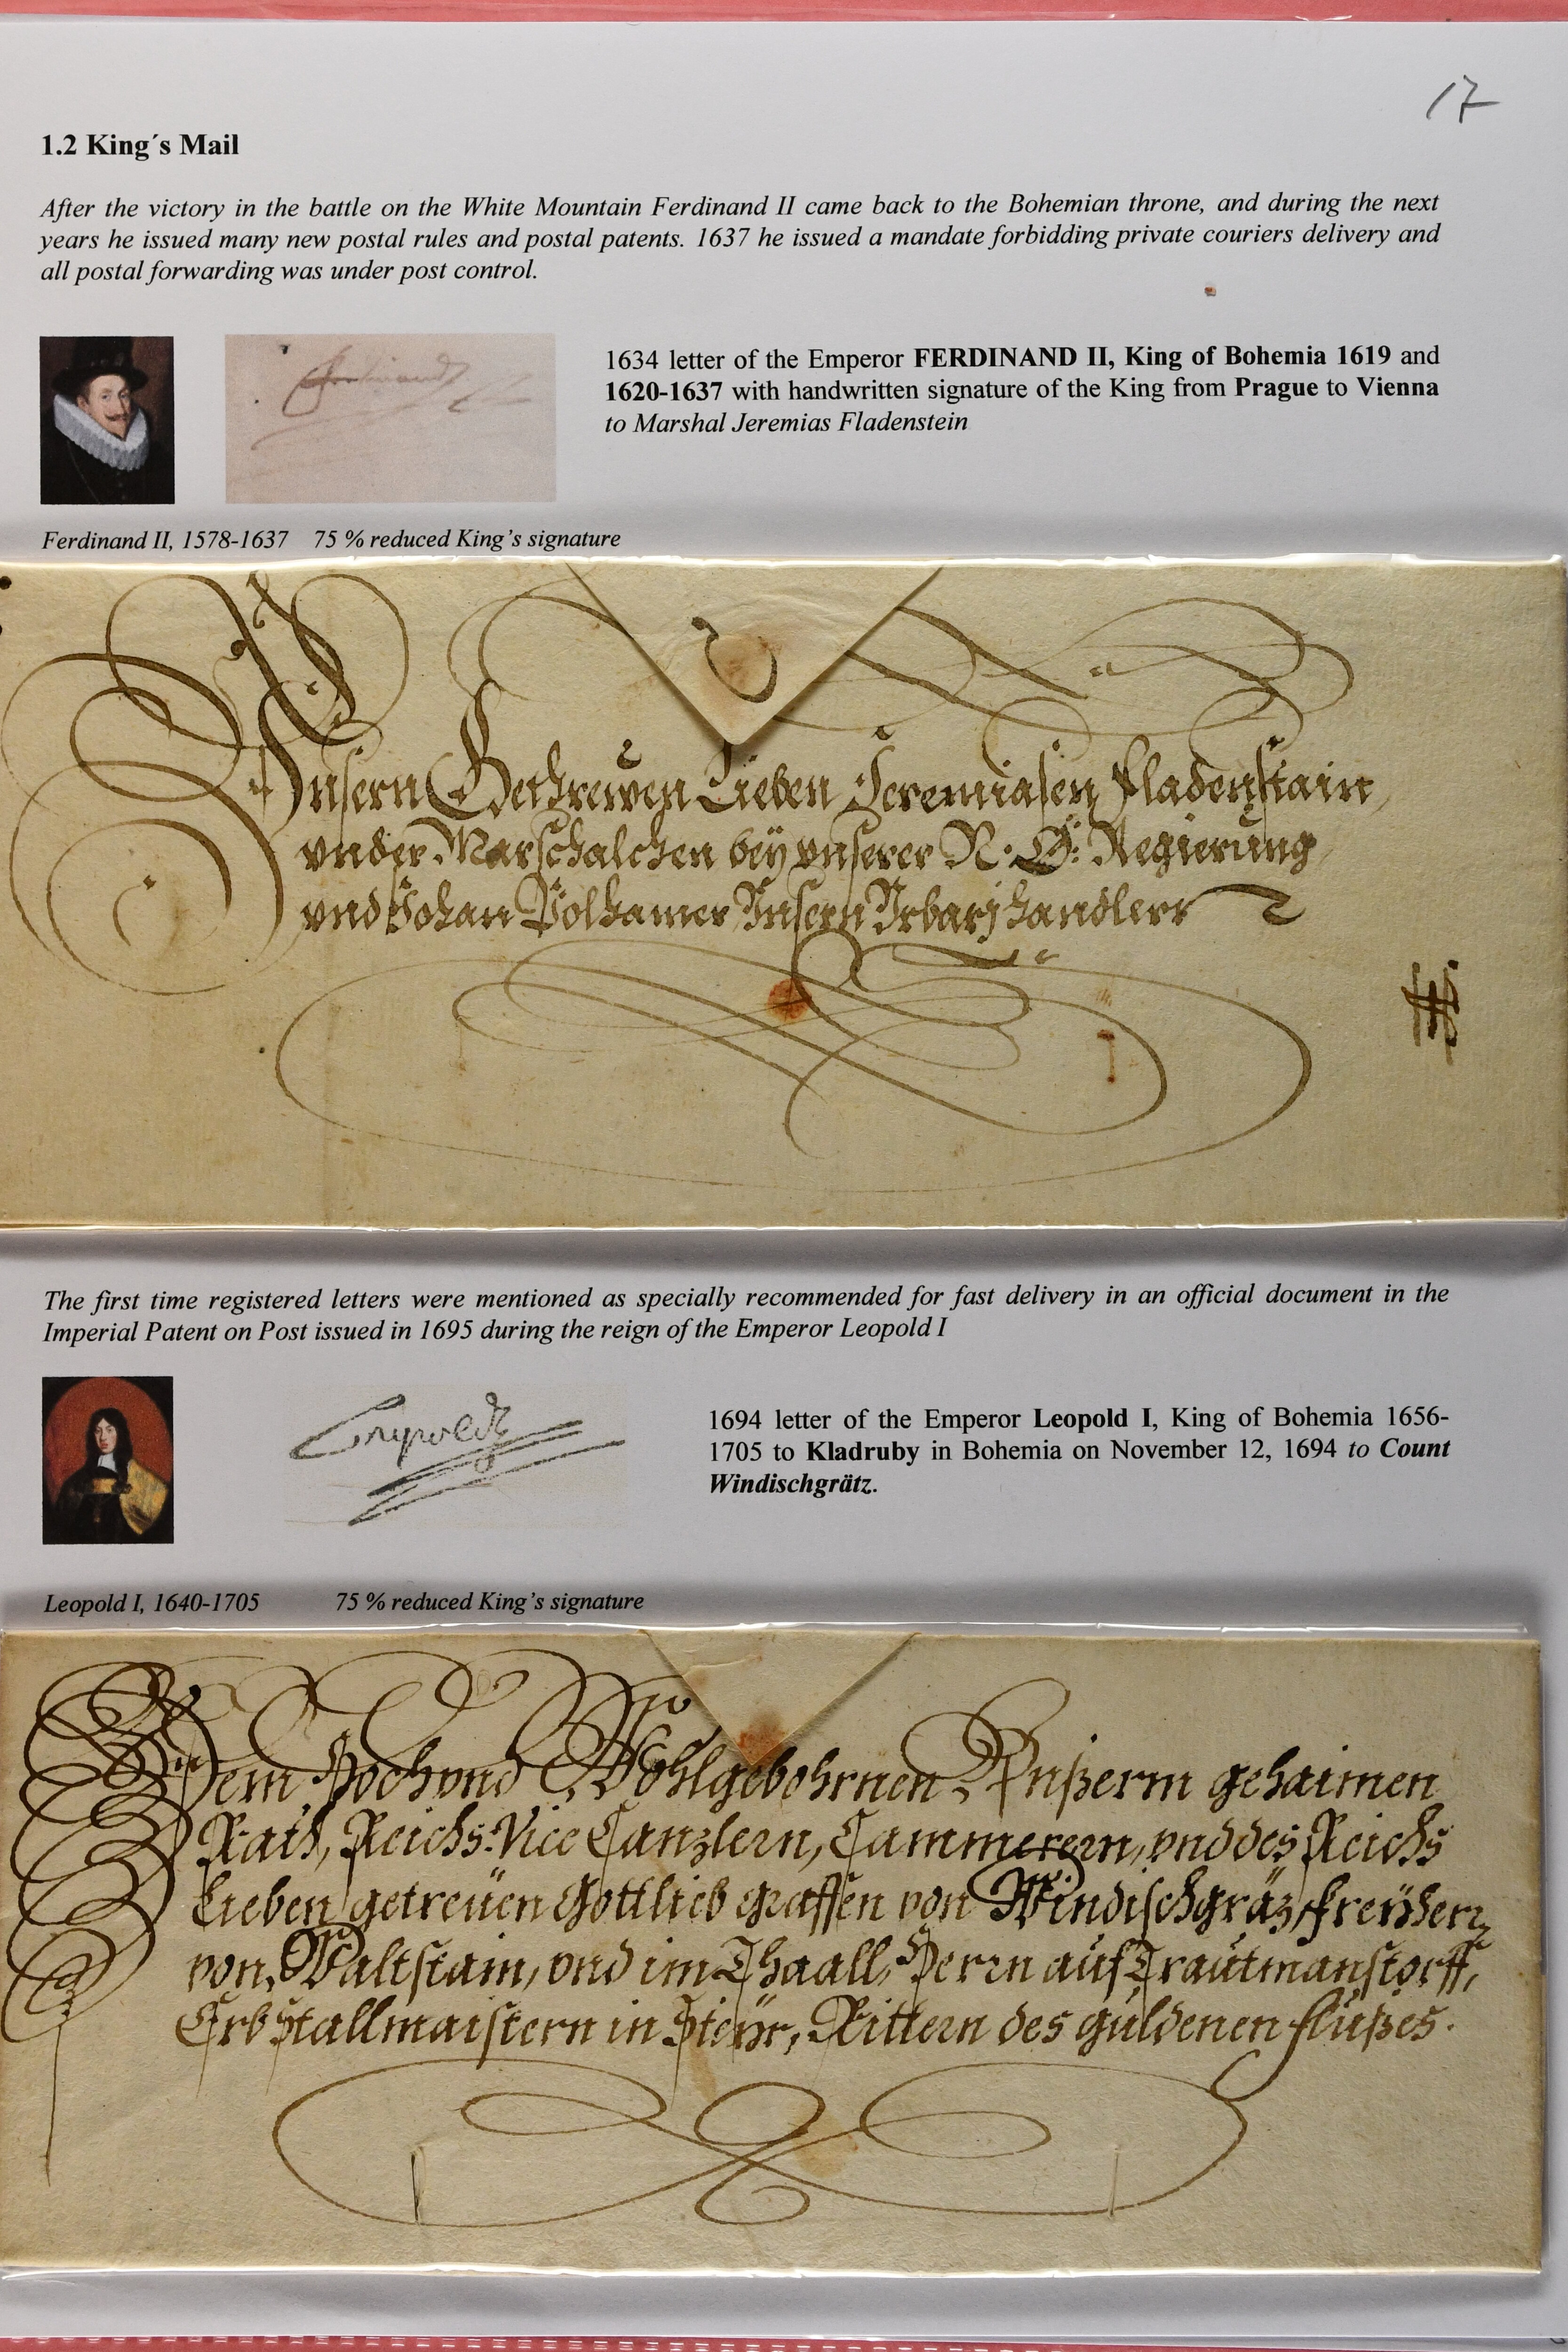 17
1.2 King´s Mail
After the victory in the battle on the White Mountain Ferdinand II came back to the Bohemian throne, and during the next
years he issued many new postal rules and postal patents. 1637 he issued a mandate forbidding private couriers delivery and
all postal forwarding was under post control.
1634 letter of the Emperor FERDINAND II, King of Bohemia 1619 and
1620-1637 with handwritten signature of the King from Prague to Vienna
to Marshal Jeremias Fladenstein
Ferdinand
Ferdinand II, 1578-1637 75 % reduced King’s signature
Unsern Getrewen Lieben Jeremiasen Fladenstain,
vnder Marschalchen bey vnserer N: Ö: Regierung
vnd Johan Unsern Urbarj handlern
The first time registered letters were mentioned as specially recommended for fast delivery in an official document in the
Imperial Patent on Post issued in 1695 during the reign of the Emperor Leopold I
1694 letter of the Emperor Leopold I, King of Bohemia 1656-
1705 to Kladruby in Bohemia on November 12, 1694 to Count
Windischgrätz.
Leopold I, 1640-1705 75 % reduced King’s signature
Dem Hoch vnd Wohlgebohrnen Unßerm gehaimen
Rath, Reichs Vice Canzlern, Cammerern, vnd des Reichs
Lieben getreüen Gottlieb Graffen von Windischgräz, Freyherrn
von Waltstain, vnd im Thaall, Herrn auf Trautmanstorff,
Erb Stallmaistern in Steyr, Rittern des guldenen flußes.